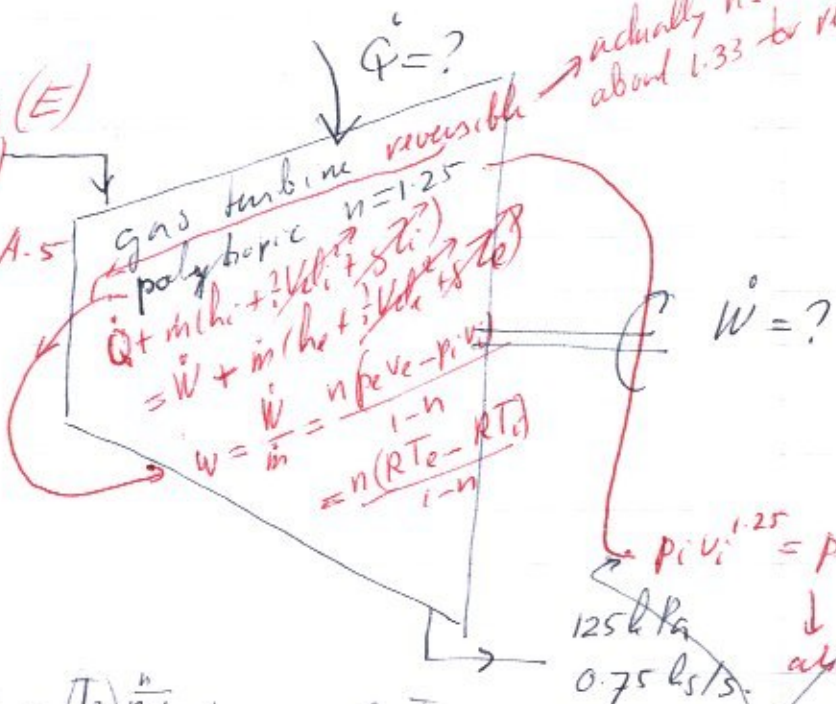 Q̇ = ?
actually n
about 1.33 for r
(E)
gas turbine reversible
polytropic n=1.25
A.5
Q̇ + ṁ(hᵢ + ½Velᵢ² + gZᵢ)
= Ẇ + ṁ(hₑ + ½Velₑ² + gZₑ)
w = Ẇ/ṁ = n(pₑvₑ - pᵢvᵢ)/1-n
= n(RTₑ - RTᵢ)/1-n
Ẇ = ?
pᵢvᵢ^1.25 = p
125 kPa
0.75 kg/s.